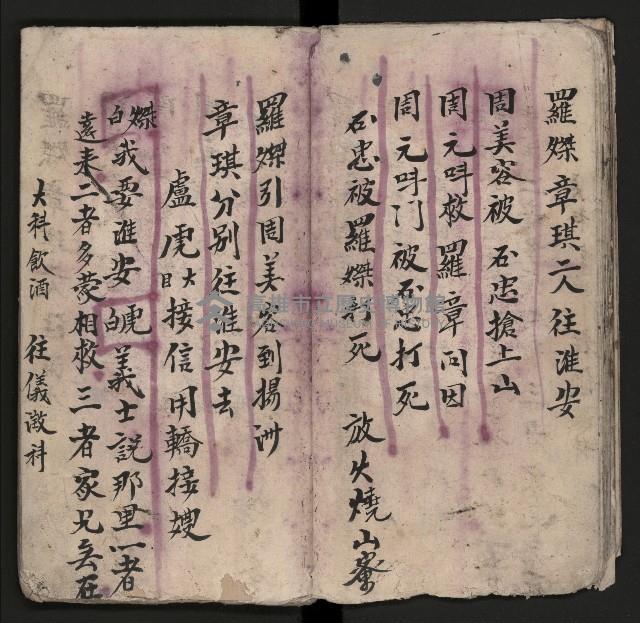 羅燦章琪二人往淮安
周美容被石忠搶上山
周元呌救羅章问因
周元呌门被石忠打死
石忠被羅燦打死 放火燒山寨
羅燦引周美容到揚洲
章琪分别往淮安去
盧虎大目接信用轎接嫂
燦白我要淮安 虎白義士説那里一者
遠来二者多蒙相救三者家兄矣在
大科飲酒 往儀澂科
高雄市立歷史博物館